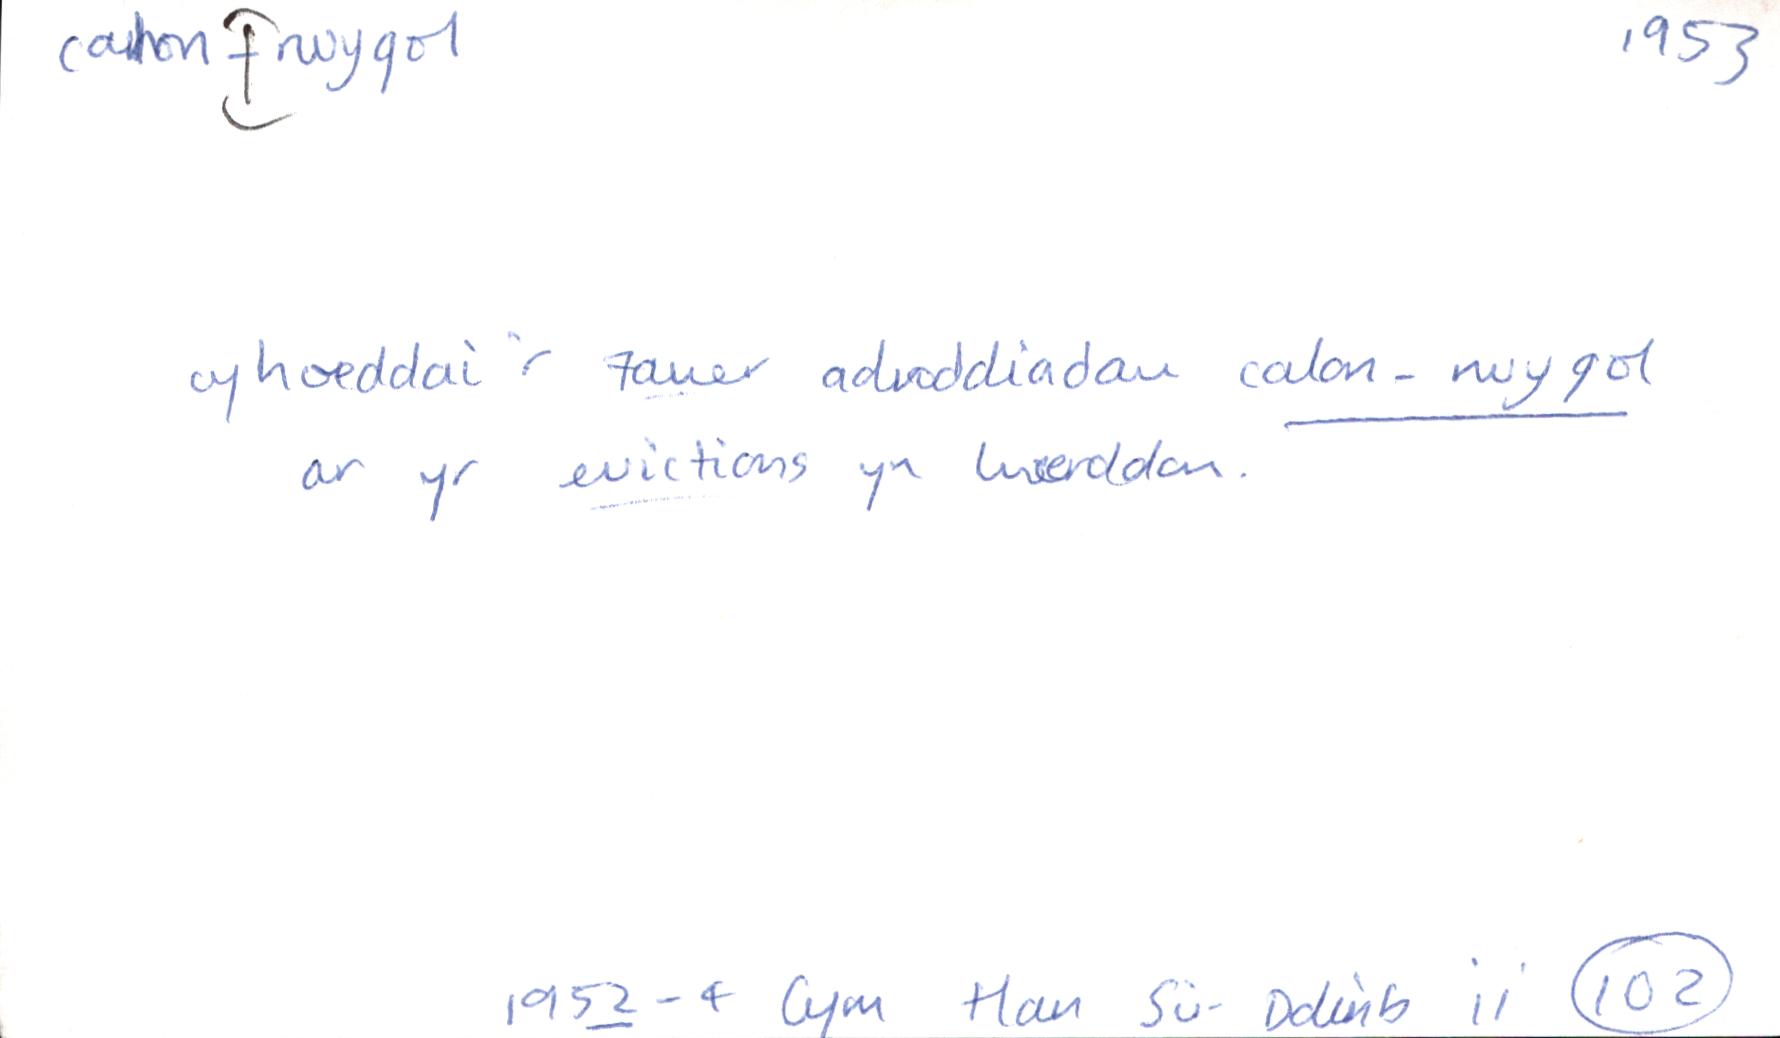 calon-rwygol 1953
cyhoeddai'r Faner adroddiadau calon-rwygol
ar yr evictions yn Iwerddon.
1952-4 Cym Han Sir Ddinb ii 102